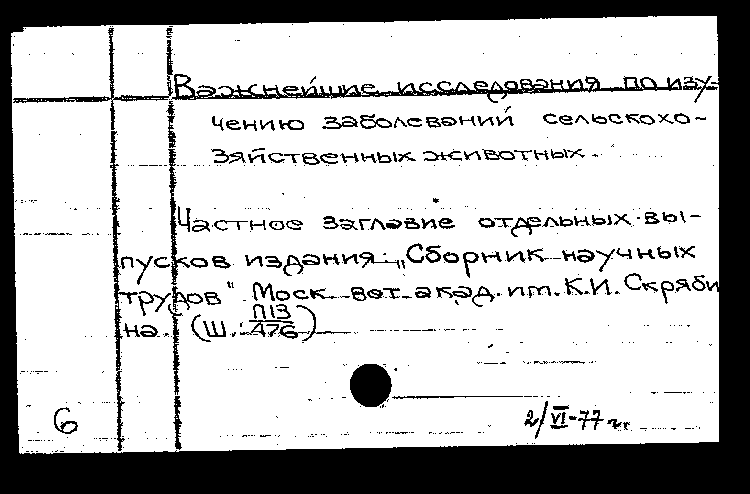 Важнейшие исследования по изу-
чению заболеваний сельскохо-
зяйственных животных.
Частное заглавие отдельных вы-
пусков издания: „Сборник научных
трудов" Моск. вет. акад. им. К.И. Скряби
на. (Ш.: П13/476)
6
2/VI-77 г.